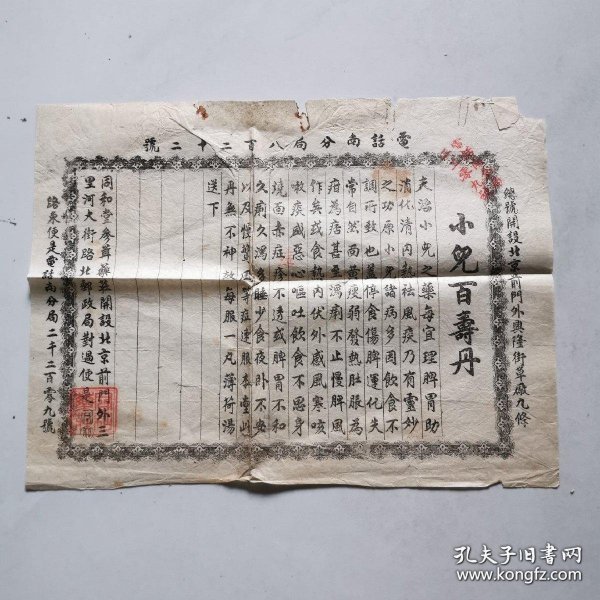 電話南分局八百二十二號
總號開設北京前門外興隆街草廠九條
小兒百壽丹
夫治小兒之藥每宜理脾胃助
消化清內熱祛風痰乃有靈妙
之功原小兒諸病多因飲食不
調所致也蓋停食傷脾運化失
常自然面黃瘦弱發熱肚脹為
疳為痞甚至瀉痢不止慢脾風
作矣或食熱內伏外感風寒咳
嗽痰盛惡心嘔吐飲食不思身
燒面赤症疹不透或脾胃不和
久痢久瀉多睡少食夜卧不安
以及驚風等症速服本堂此
丹無不神效每服一丸薄荷湯
送下
同和堂參茸藥莊開設北京前門外三
里河大街路北郵政局對過便是
路東便是電話南分局二千二百零九號
孔夫子旧书网
www.kongfz.com